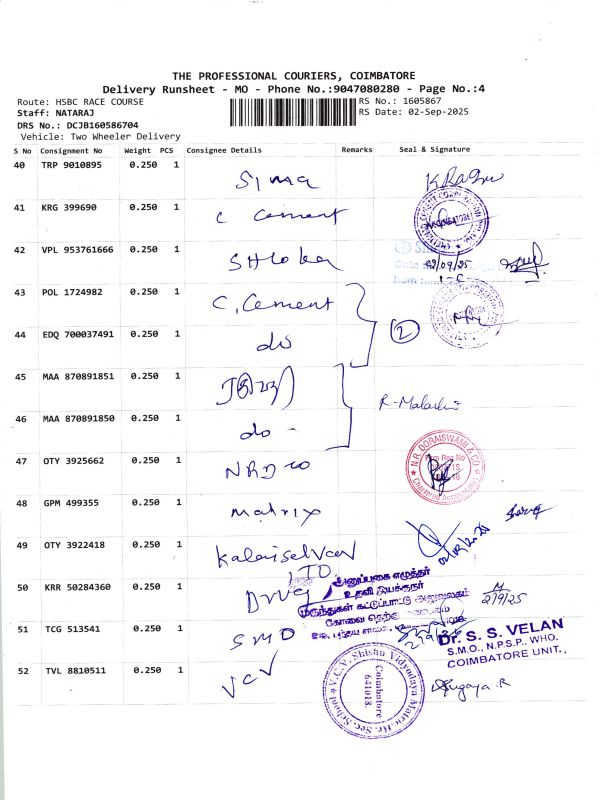 THE PROFESSIONAL COURIERS, COIMBATORE
Delivery Runsheet - MO - Phone No.:9047080280 - Page No.:4
Route: HSBC RACE COURSE RS No.: 1605867
Staff: NATARAJ RS Date: 02-Sep-2025
DRS No.: DCJB160586704
Vehicle: Two Wheeler Delivery
S No Consignment No Weight PCS Consignee Details Remarks Seal & Signature
40 TRP 9010895 0.250 1 K Raghu
41 KRG 399690 0.250 1 C Cement
42 VPL 953761666 0.250 1 SHloka 02/09/25
43 POL 1724982 0.250 1 C, Cement
2
44 EDQ 700037491 0.250 1 do
45 MAA 870891851 0.250 1
R-Malathi
46 MAA 870891850 0.250 1 do
47 OTY 3925662 0.250 1 NRD co N.R. DORAISWAMI & CO. Chartered Accountants
48 GPM 499355 0.250 1 Matrix
49 OTY 3922418 0.250 1 Kalaiselvan
ITO
50 KRR 50284360 0.250 1 Drug 2/9/25
அனுப்புகை எழுத்தர்
உதவி இயக்குநர்
மருந்துகள் கட்டுப்பாட்டு அலுவலகம்
51 TCG 513541 0.250 1 SMO
Dr. S. S. VELAN
S.M.O., N.P.S.P., WHO.
COIMBATORE UNIT.,
52 TVL 8810511 0.250 1 VCV Sugaya.R
V.C.V. Shishu Vidyodaya Matric. Hr. Sec. School
Coimbatore
641018.